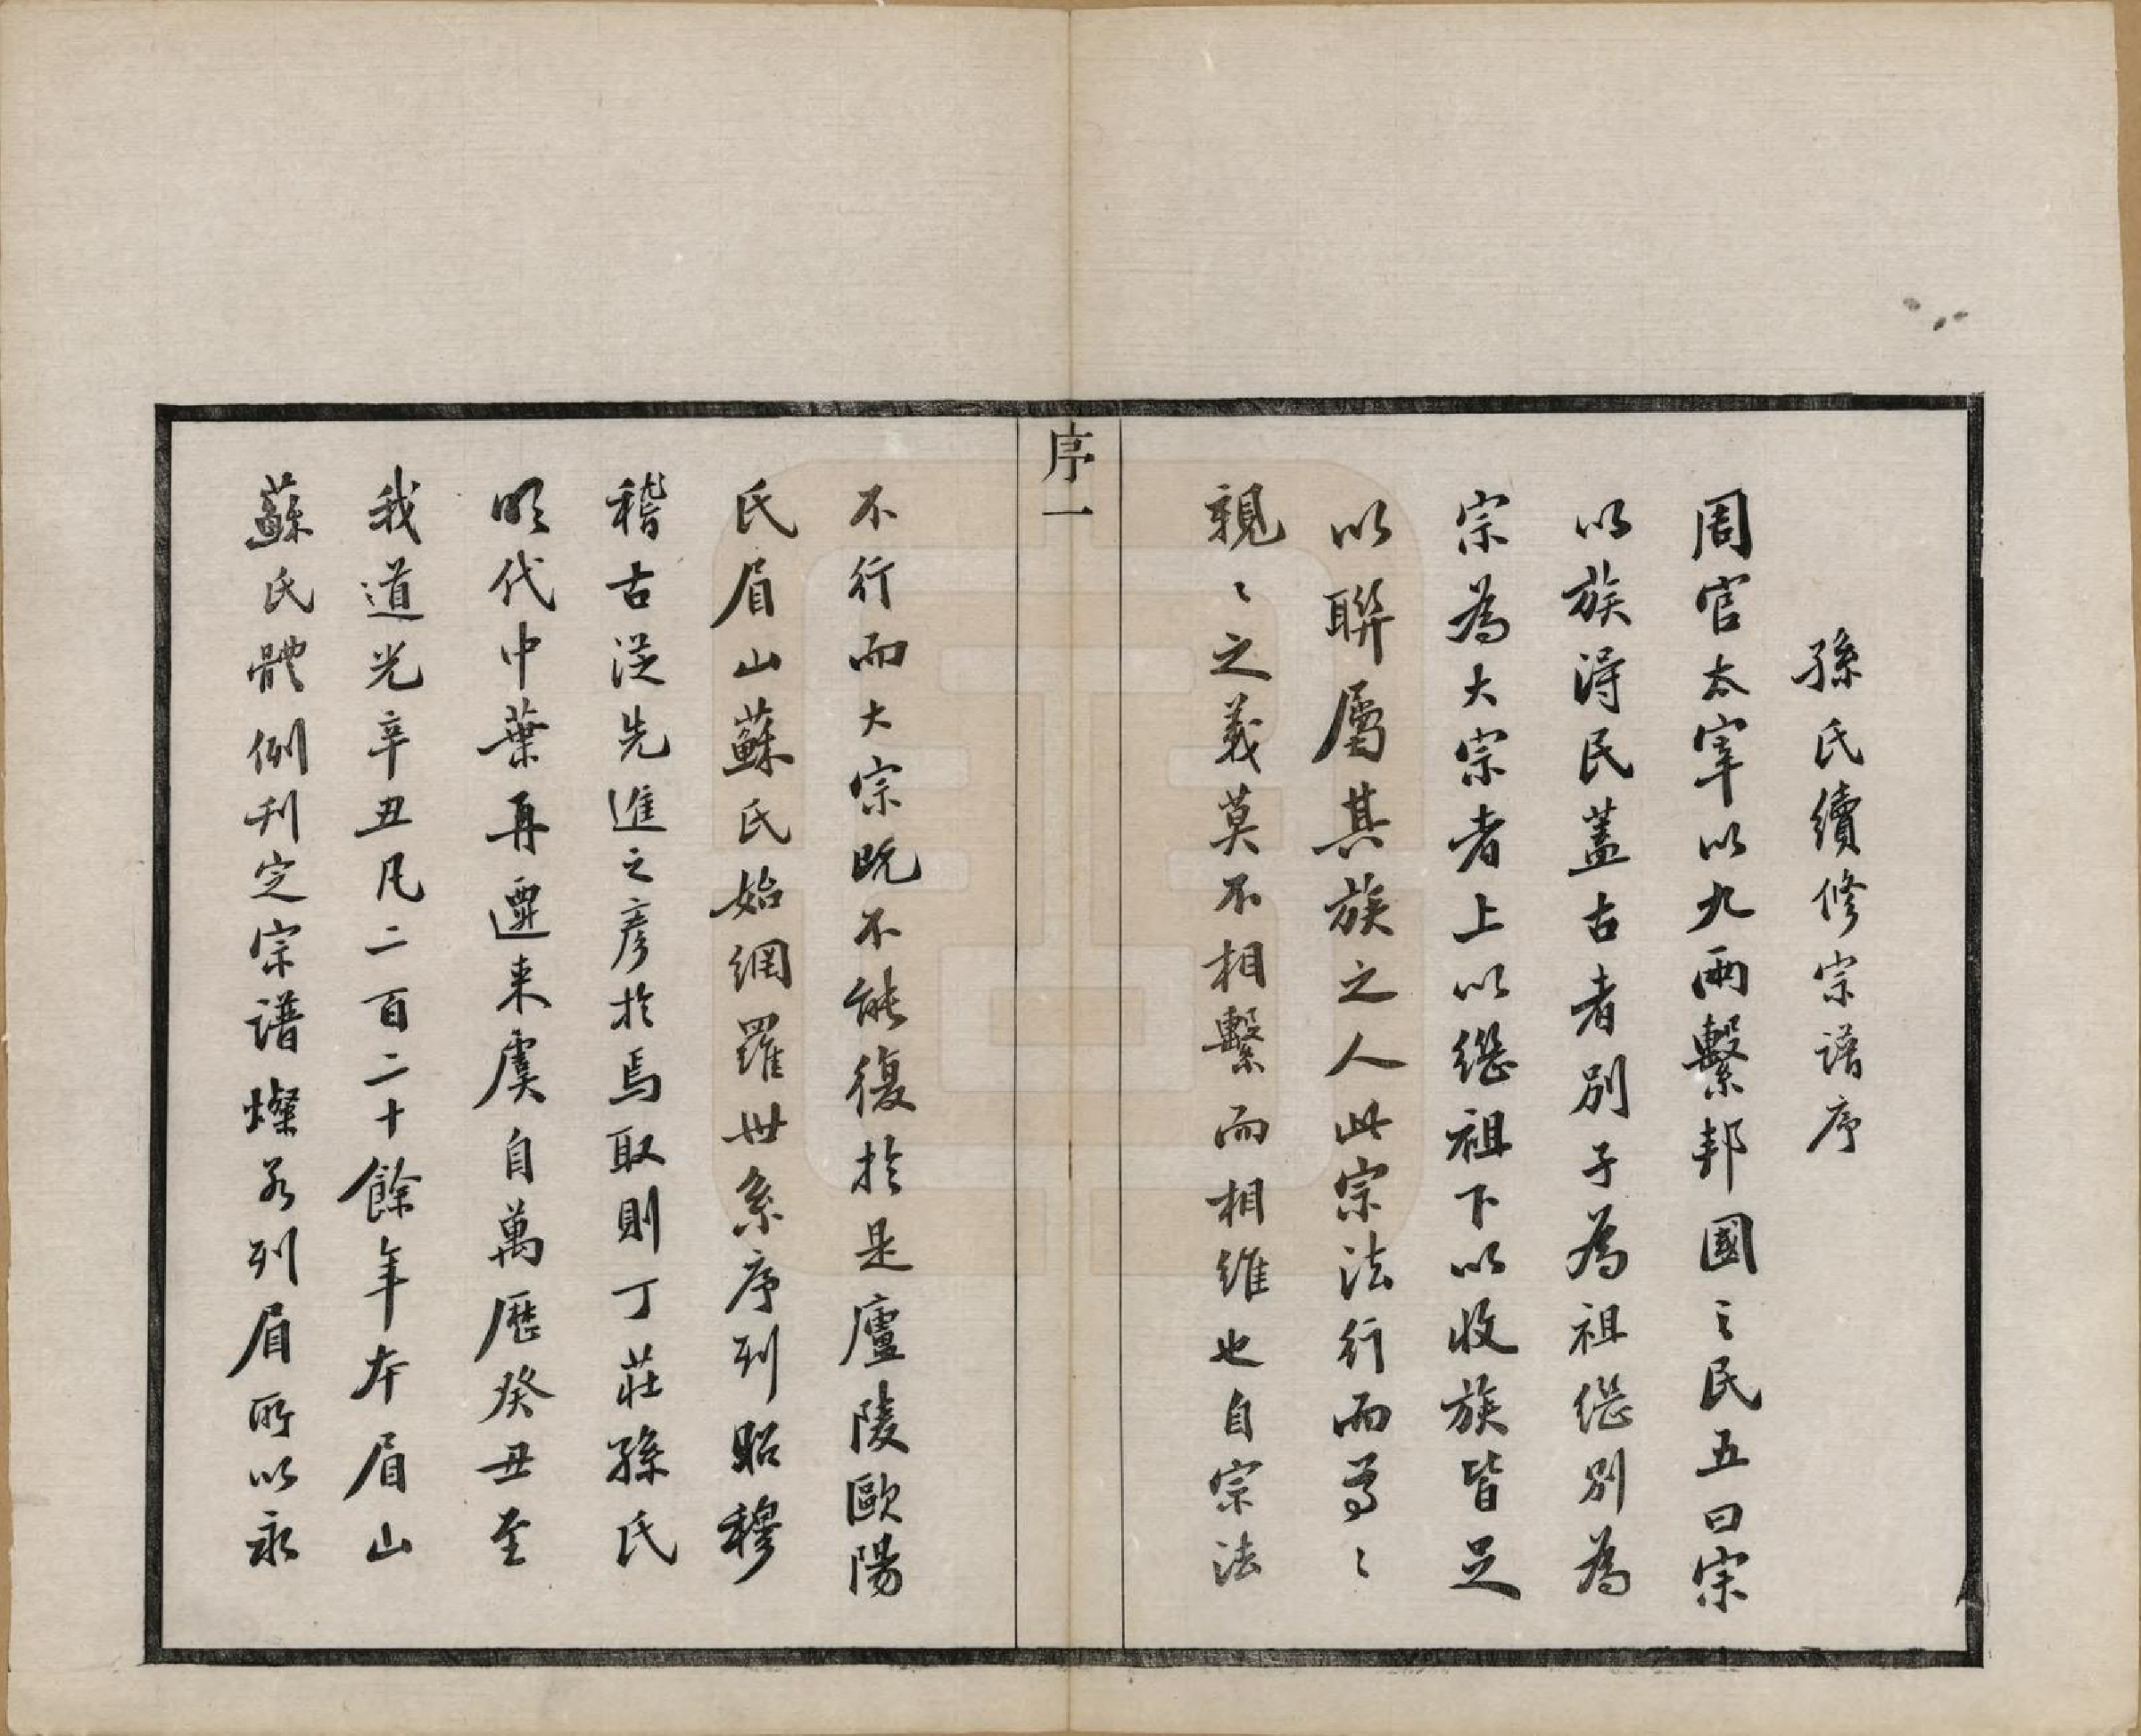 孫氏續修宗譜序
周官太宰以九兩繫邦國之民五曰宗
以族得民蓋古者別子為祖繼別為
宗為大宗者上以繼祖下以收族皆足
以聯屬其族之人此宗法行而尊〻
親〻之義莫不相繫而相維也自宗法
序一
不行而大宗既不能復於是廬陵歐陽
氏眉山蘇氏始網羅世系序列昭穆
稽古從先進之彥於焉取則丁莊孫氏
明代中葉再遷来虞自萬歷癸丑至
我道光辛丑凡二百二十餘年本眉山
蘇氏體例刋定宗譜燦若列眉所以永